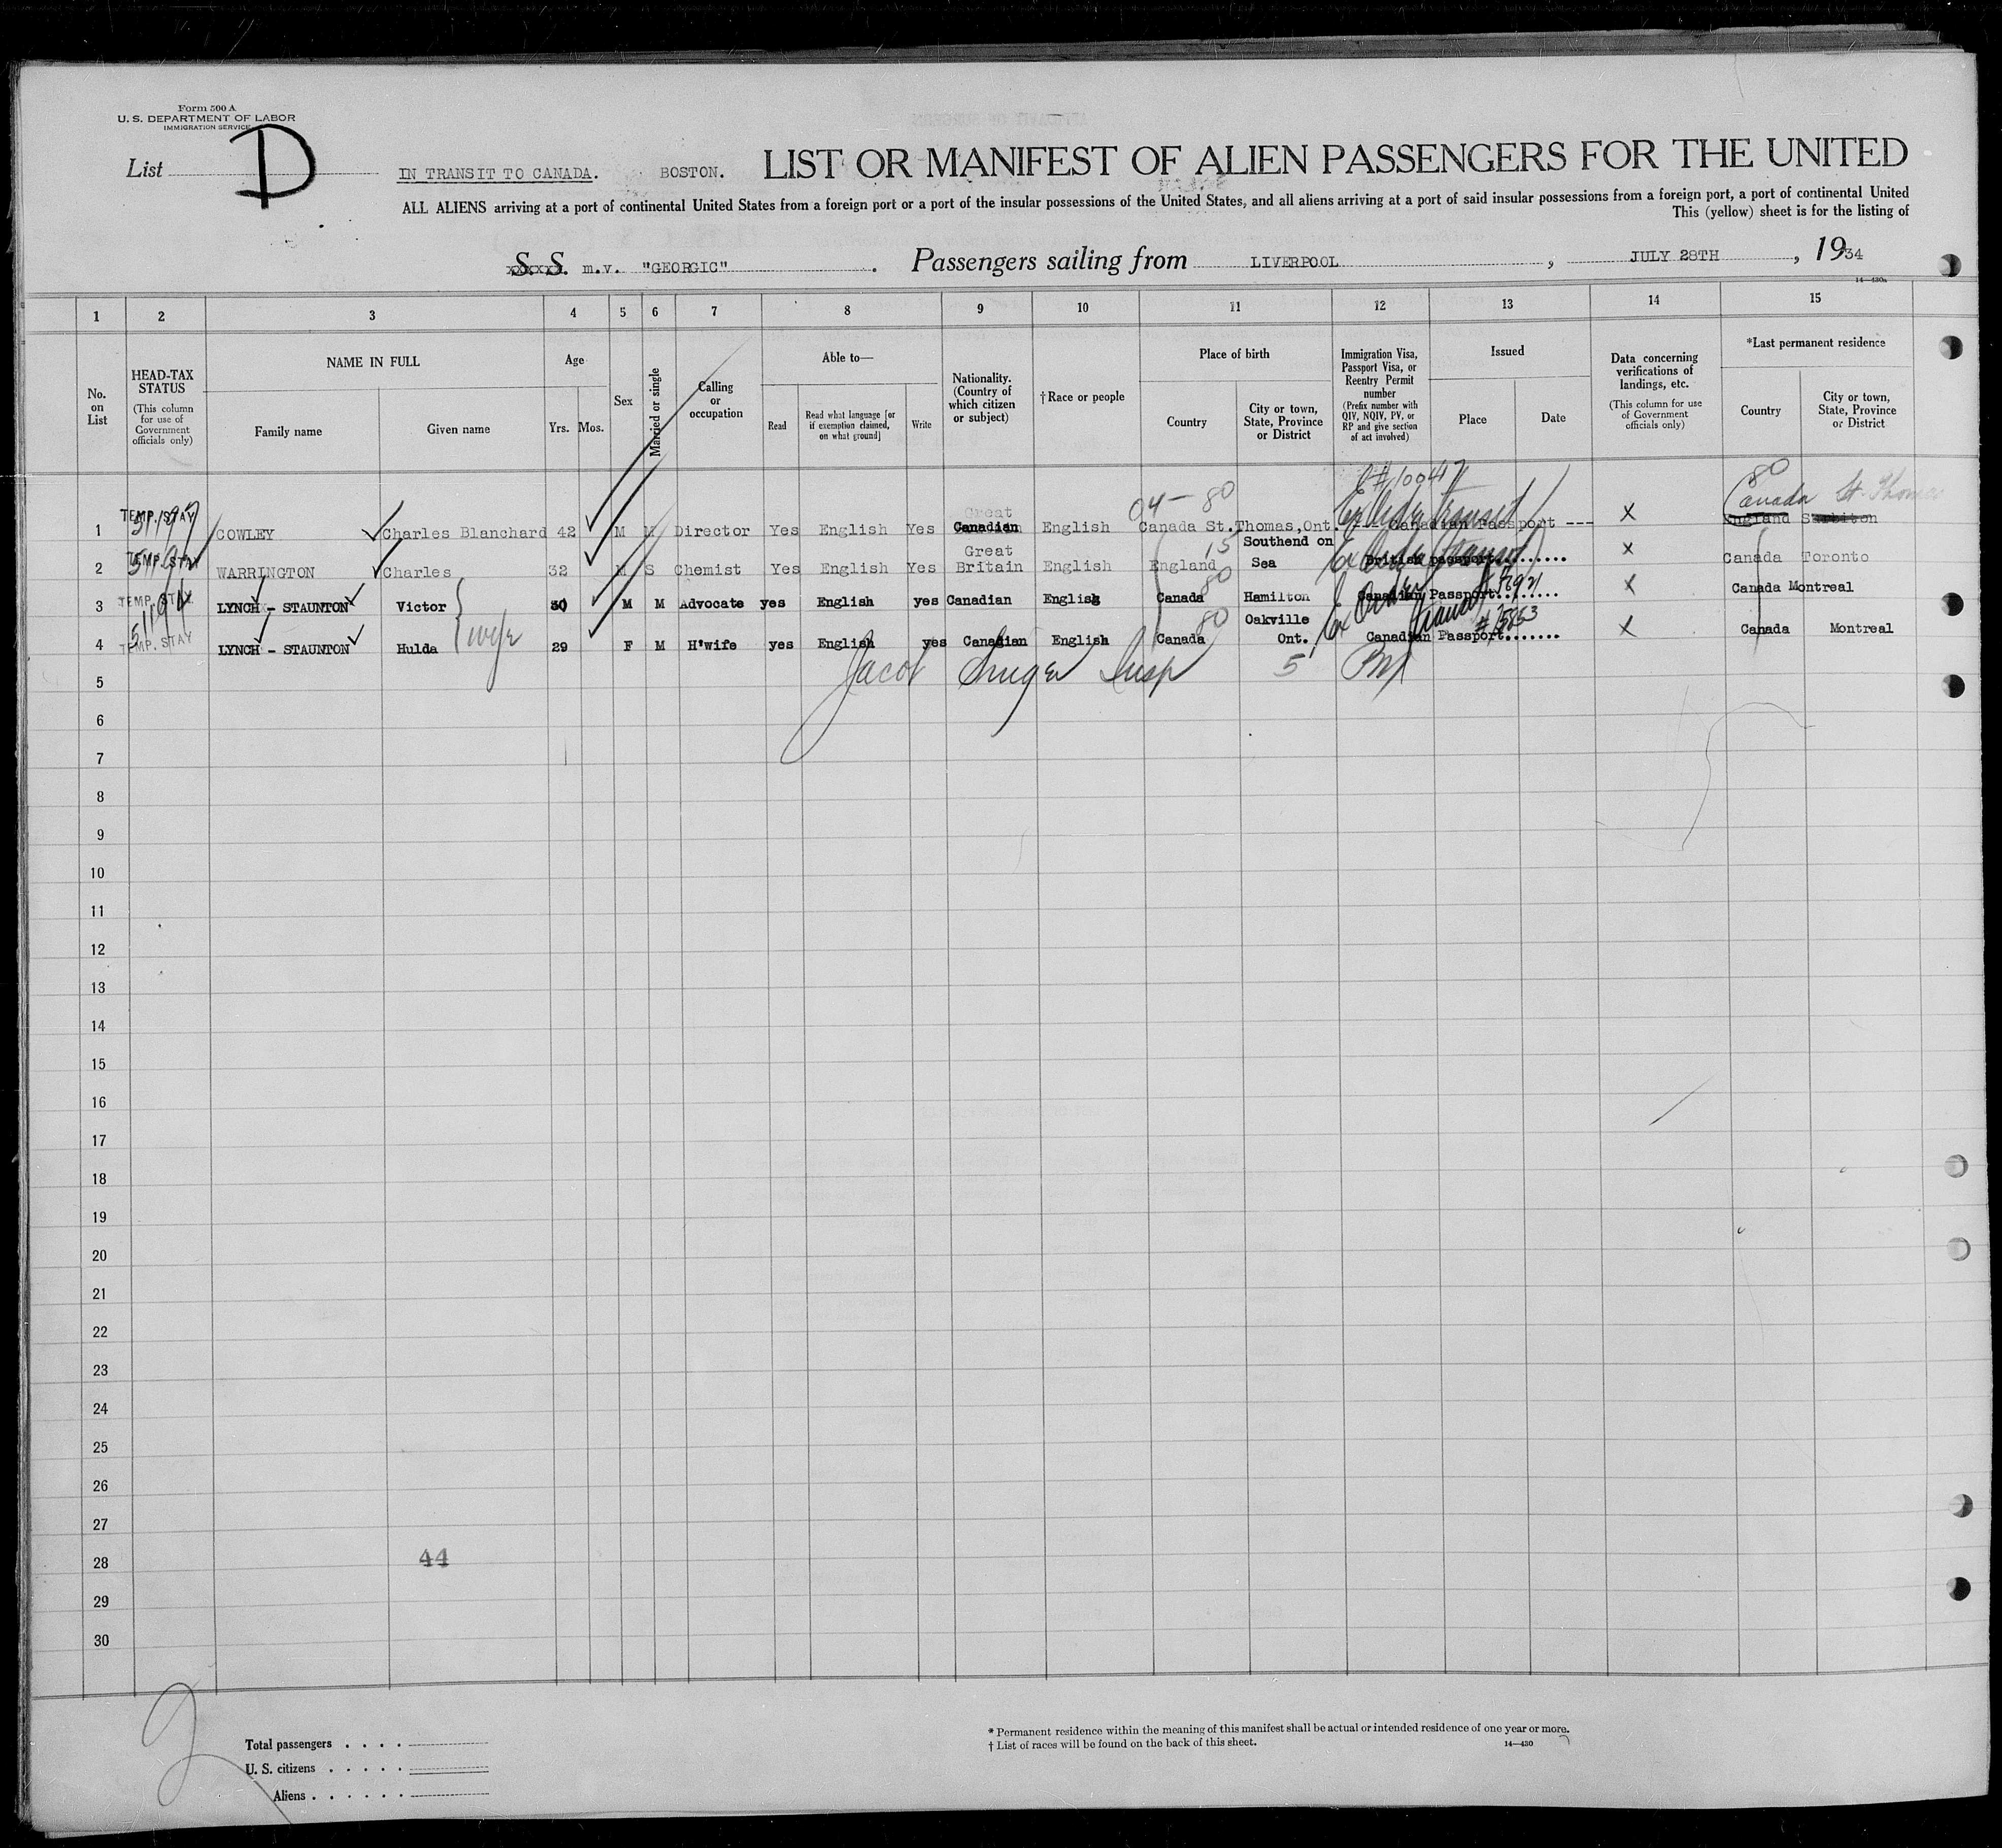 Form 500 A
U. S. DEPARTMENT OF LABOR
IMMIGRATION SERVICE
List D
IN TRANSIT TO CANADA. BOSTON. LIST OR MANIFEST OF ALIEN PASSENGERS FOR THE UNITED
ALL ALIENS arriving at a port of continental United States from a foreign port or a port of the insular possessions of the United States, and all aliens arriving at a port of said insular possessions from a foreign port, a port of continental United
This (yellow) sheet is for the listing of
S. S. m.v. "GEORGIC" . Passengers sailing from LIVERPOOL , JULY 28TH , 1934
14—430a
1 2 3 4 5 6 7 8 9 10 11 12 13 14 15
No. on List
HEAD-TAX STATUS
(This column for use of Government officials only)
NAME IN FULL
Family name Given name
Age
Yrs. Mos.
Sex
Married or single
Calling or occupation
Able to—
Read
Read what language [or if exemption claimed, on what ground]
Write
Nationality. (Country of which citizen or subject)
†Race or people
Place of birth
Country
City or town, State, Province or District
Immigration Visa, Passport Visa, or Reentry Permit number
(Prefix number with QIV, NQIV, PV, or RP and give section of act involved)
Issued
Place Date
Data concerning verifications of landings, etc.
(This column for use of Government officials only)
*Last permanent residence
Country
City or town, State, Province or District
#10047 80
04 - 80 Canada St. Thomas
TEMP. STAY Great transit
1 COWLEY Charles Blanchard 42 M M Director Yes English Yes Canadian English Canada St.Thomas,Ont. --- Canadian Passport --- X England Surbiton
TEMP. STAY Great 15 Southend on
2 WARRINGTON Charles 32 M S Chemist Yes English Yes Britain English England Sea British passport........ X Canada Toronto
TEMP. STAY 80
3 LYNCH - STAUNTON Victor 30 M M Advocate yes English yes Canadian English Canada Hamilton Canadian Passport....... X Canada Montreal
TEMP. STAY wife 80 Oakville transit
4 LYNCH - STAUNTON Hulda 29 F M H'wife yes English yes Canadian English Canada Ont. Canadian Passport....... X Canada Montreal
5 Jacob Insp 5
6
7
8
9
10
11
12
13
14
15
16
17
18
19
20
21
22
23
24
25
26
27
28 44
29
30
2
Total passengers . . . .
U. S. citizens . . . . .
Aliens . . . . . .
* Permanent residence within the meaning of this manifest shall be actual or intended residence of one year or more.
† List of races will be found on the back of this sheet. 14—430